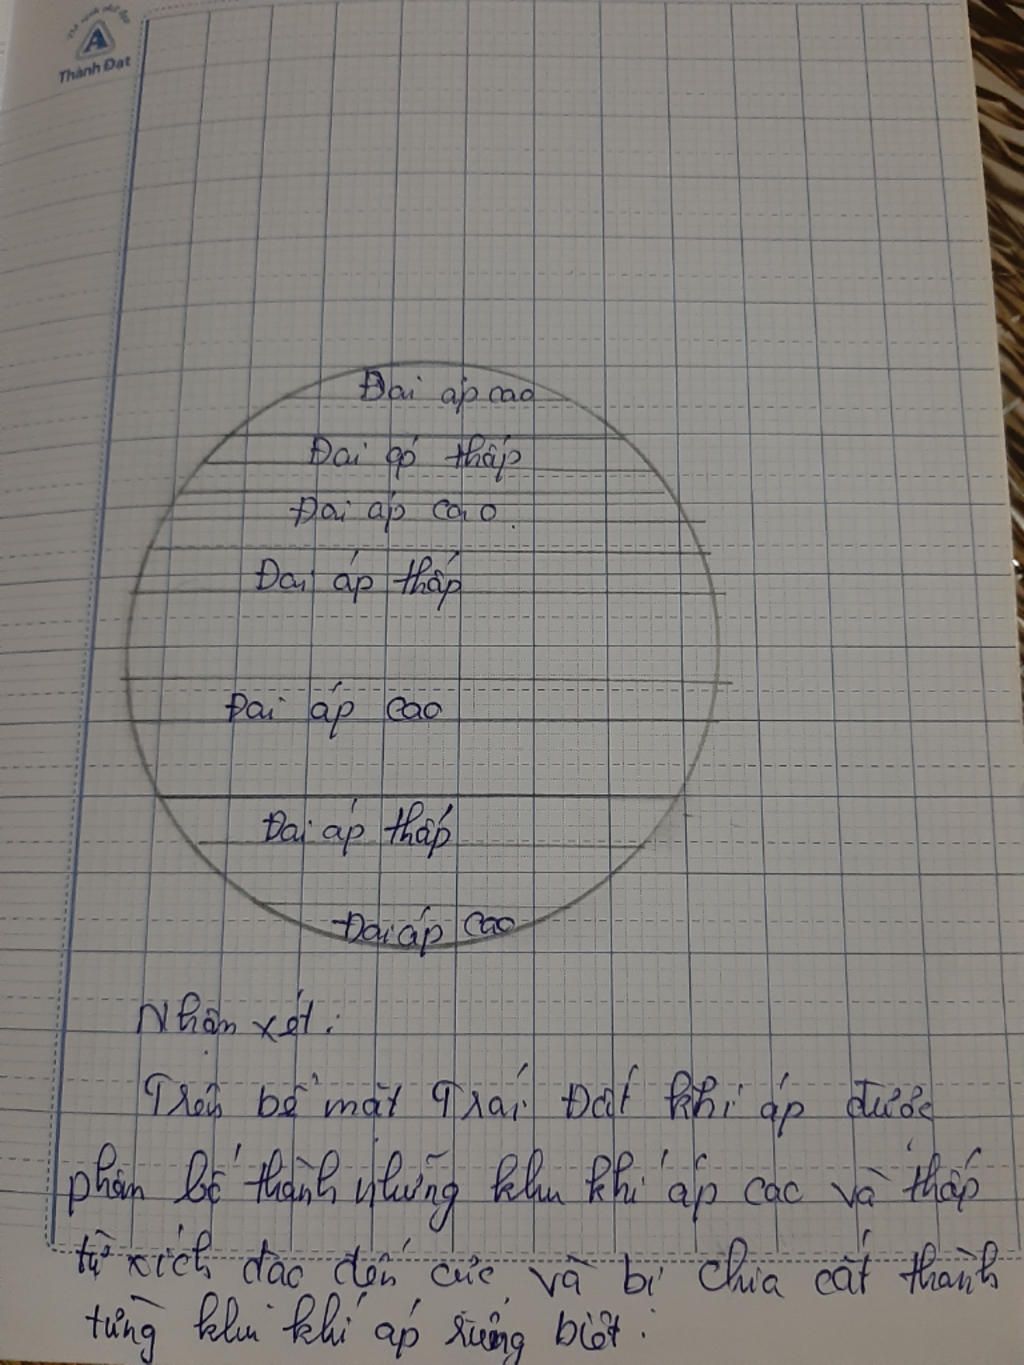 A
Thành Đạt
Đai áp cao
Đai áp thấp
Đai áp cao.
Đai áp thấp
Đai áp cao
Đai áp thấp
Đai áp cao
Nhận xét:
Trên bề mặt Trái Đất khí áp được
phân bố thành những khu khí áp cac và thấp
từ xích đạc đến cực và bị chia cắt thành
từng khu khí áp riêng biệt.